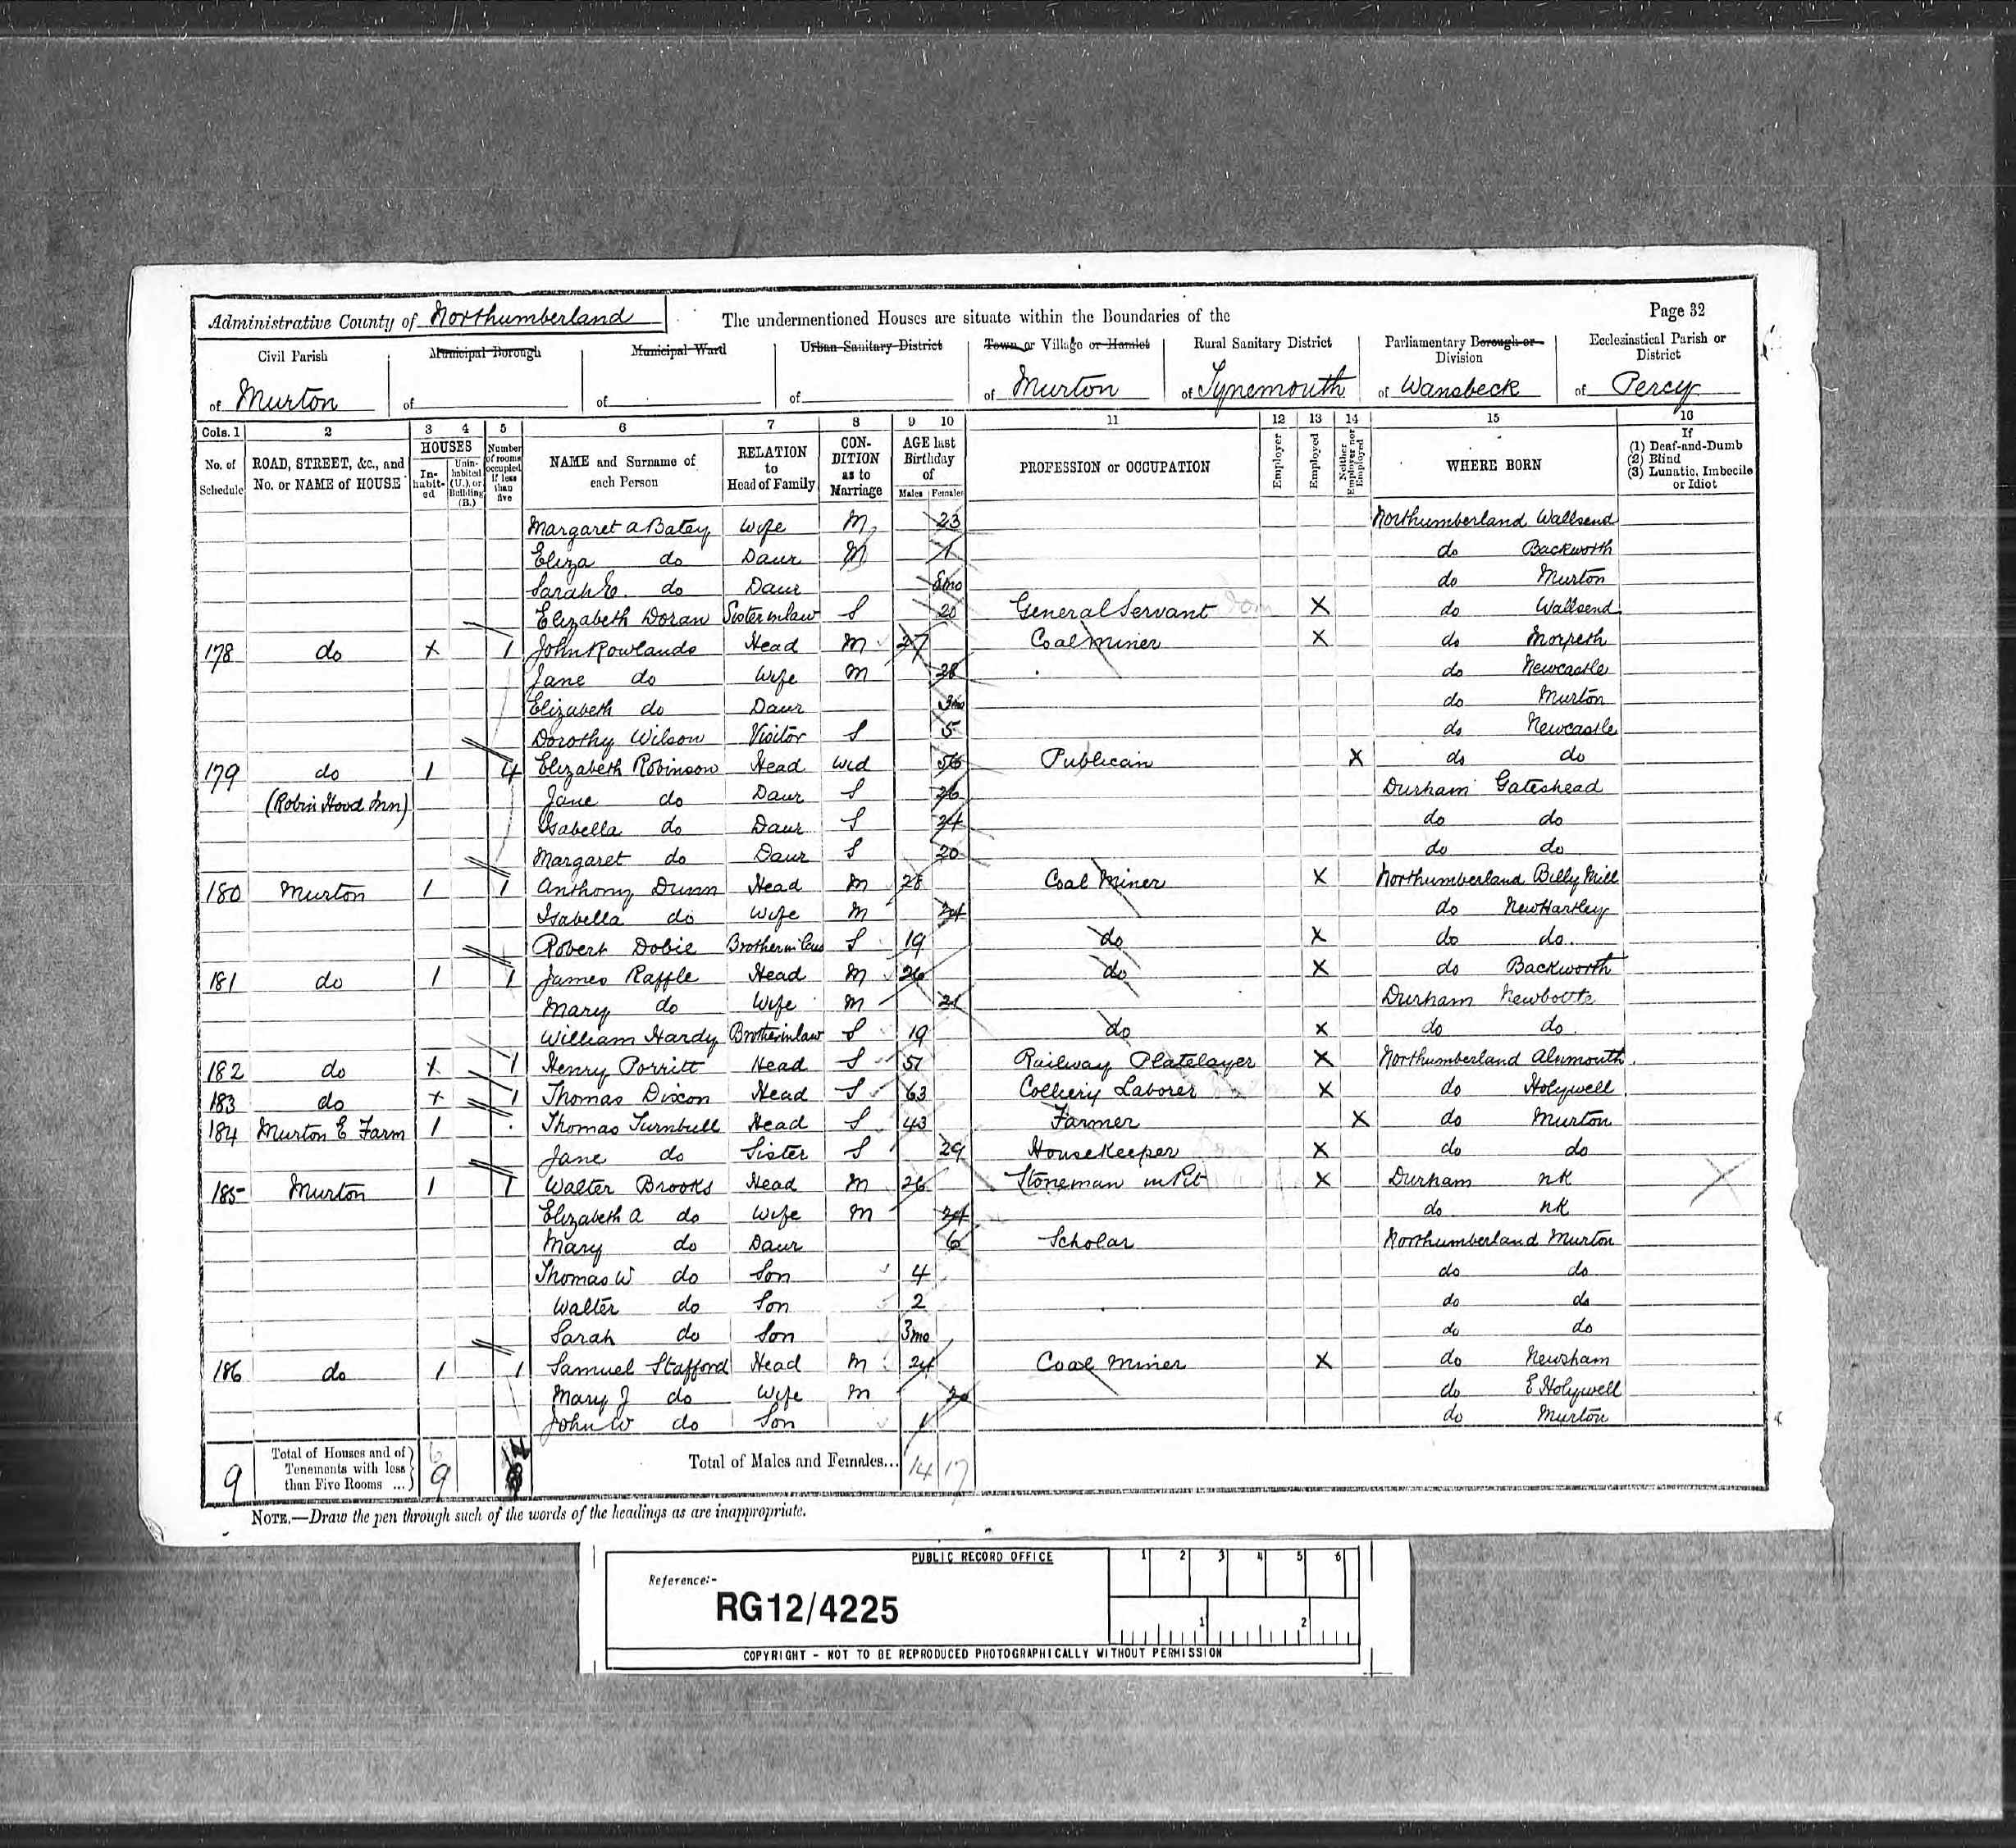 Administrative County of Northumberland The undermentioned Houses are situate within the Boundaries of the Page 32
Civil Parish Municipal Borough Municipal Ward Urban Sanitary District Town or Village or Hamlet Rural Sanitary District Parliamentary Borough or Division Ecclesiastical Parish or District
of Murton of of of of Murton of Tynemouth of Wansbeck of Percy
Cols. 1 2 3 4 5 6 7 8 9 10 11 12 13 14 15 16
No. of Schedule ROAD, STREET, &c., and No. or NAME of HOUSE HOUSES Inhabited Uninhabited (U.), or Building (B.) Number of rooms occupied if less than five NAME and Surname of each Person RELATION to Head of Family CONDITION as to Marriage AGE last Birthday of Males Females PROFESSION or OCCUPATION Employer Employed Neither Employer nor Employed WHERE BORN If (1) Deaf-and-Dumb (2) Blind (3) Lunatic, Imbecile or Idiot
Margaret A Batey Wife M 23 Northumberland Wallsend
Eliza do Daur M 1 do Backworth
Sarah E. do Daur 8mo do Murton
Elizabeth Doran Sister in law S 20 General Servant Dom X do Wallsend
178 do X 1 John Rowlands Head M 27 Coal Miner X do Morpeth
Jane do Wife M 28 do Newcastle
Elizabeth do Daur 3mo do Murton
Dorothy Wilson Visitor S 5 do Newcastle
179 do 1 4 Elizabeth Robinson Head Wid 56 Publican X do do
(Robin Hood Inn) Jane do Daur S 26 Durham Gateshead
Isabella do Daur S 24 do do
Margaret do Daur S 20 do do
180 Murton 1 1 Anthony Dunn Head M 28 Coal Miner X Northumberland Billy Mill
Isabella do Wife M 24 do New Hartley
Robert Dobie Brother in law S 19 do X do do.
181 do 1 1 James Raffle Head M 26 do X do Backworth
Mary do Wife M 21 Durham Newbottle
William Hardy Brother in law S 19 do X do do.
182 do X 1 Henry Porritt Head S 51 Railway Platelayer X Northumberland Alnmouth.
183 do X 1 Thomas Dixon Head S 63 Colliery Laborer X do Holywell
184 Murton E Farm 1 Thomas Turnbull Head S 43 Farmer X do Murton
Jane do Sister S 29 HouseKeeper X do do
185 Murton 1 1 Walter Brooks Head M 26 Stoneman in Pit X Durham NK
Elizabeth A do Wife M 24 do NK
Mary do Daur 6 Scholar Northumberland Murton
Thomas W do Son 4 do do
Walter do Son 2 do do
Sarah do Son 3mo do do
186 do 1 1 Samuel Stafford Head M 24 Coal Miner X do Newsham
Mary J do Wife M 20 do E Holywell
John W do Son 1 do Murton
9 Total of Houses and of Tenements with less than Five Rooms ... 6 9 Total of Males and Females... 14 17
NOTE.—Draw the pen through such of the words of the headings as are inappropriate.
PUBLIC RECORD OFFICE 1 2 3 4 5 6
Reference:-
RG12/4225 1 2
COPYRIGHT - NOT TO BE REPRODUCED PHOTOGRAPHICALLY WITHOUT PERMISSION